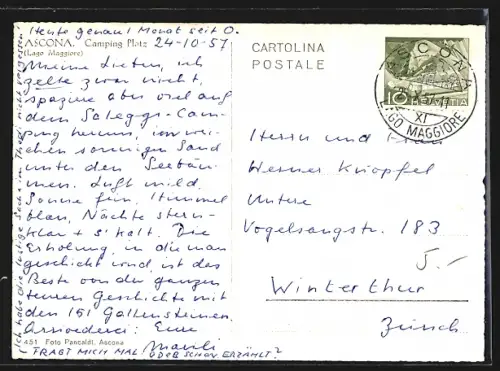 Heute genau 1 Monat seit O.
ASCONA, Camping Platz 24-10-57
(Lago Maggiore)
Meine Lieben, ich
zelte zwar nicht,
spaziere aber viel auf
dem Saleggi-Cam-
ping herum, im wei-
chen sonnigen Sand
unter den Seebäu-
men. Luft mild.
Sonne fein. Himmel
blau, Nächte stern-
klar + s' kalt. Die
Erholung, in die man
geschickt wird, ist das
Beste von der ganzen
teuren Geschichte mit
den 151 Gallensteinen.
Arrivederci: Eure
Marili
451 Foto Pancaldi, Ascona
FRAGT MICH MAL ODER SCHON ERZÄHLT?
Ich habe die lustige Sache im Theater nicht vergessen!
CARTOLINA
POSTALE
10 HELVETIA
ASCONA
XI
LAGO MAGGIORE
Herrn und Frau
Werner Knöpfel
Untere
Vogelsangstr. 183
5.-
Winterthur
Zürich